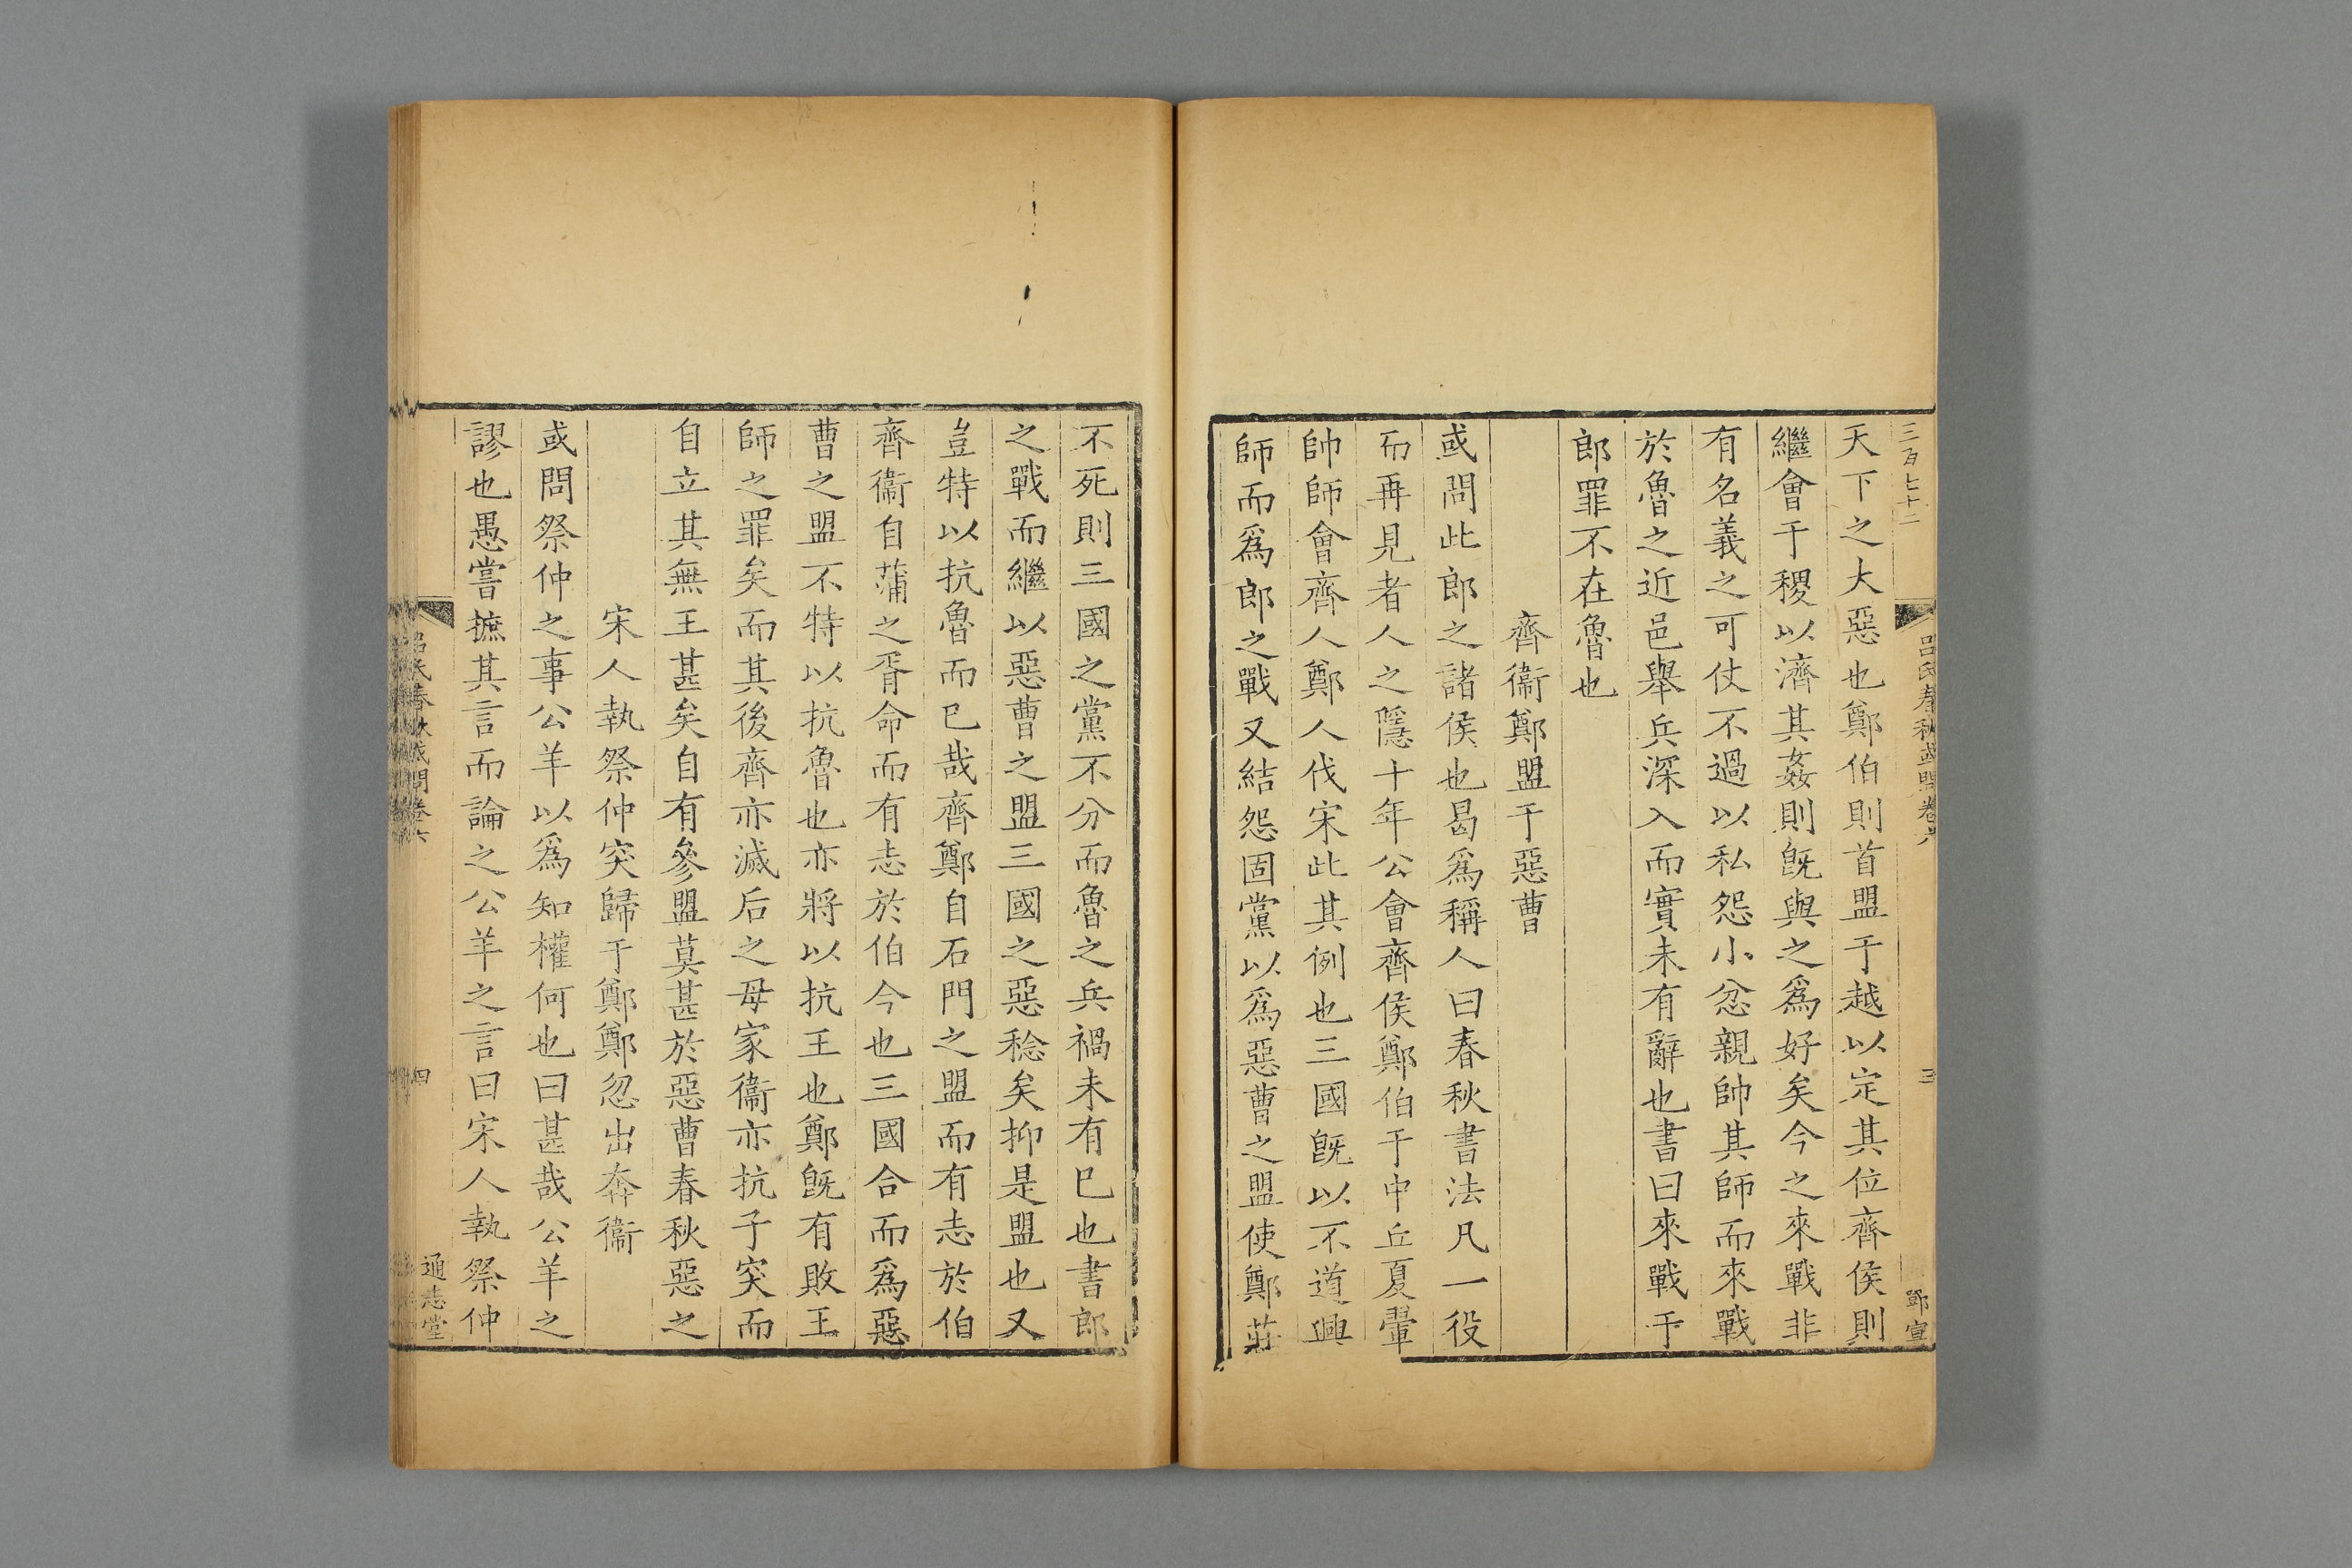 三百七十二
呂氏春秋或問卷六
三
鄧宣
天下之大惡也鄭伯則首盟于越以定其位齊侯則
繼會于稷以濟其姦則旣與之為好矣今之來戰非
有名義之可仗不過以私怨小忿親帥其師而來戰
於魯之近邑舉兵深入而實未有辭也書曰來戰于
郎罪不在魯也
齊衞鄭盟于惡曹
或問此郎之諸侯也曷為稱人曰春秋書法凡一役
而再見者人之隱十年公會齊侯鄭伯于中丘夏翬
帥師會齊人鄭人伐宋此其例也三國旣以不道興
師而爲郎之戰又結怨固黨以爲惡曹之盟使鄭莊
不死則三國之黨不分而魯之兵禍未有已也書郎
之戰而繼以惡曹之盟三國之惡稔矣抑是盟也又
豈特以抗魯而已哉齊鄭自石門之盟而有志於伯
齊衞自蒲之胥命而有志於伯今也三國合而爲惡
曹之盟不特以抗魯也亦將以抗王也鄭旣有敗王
師之罪矣而其後齊亦滅后之母家衞亦抗子突而
自立其無王甚矣自有參盟莫甚於惡曹春秋惡之
宋人執祭仲突歸于鄭鄭忽出奔衞
或問祭仲之事公羊以爲知權何也曰甚哉公羊之
謬也愚嘗摭其言而論之公羊之言曰宋人執祭仲
呂氏春秋或問卷六
四
通志堂